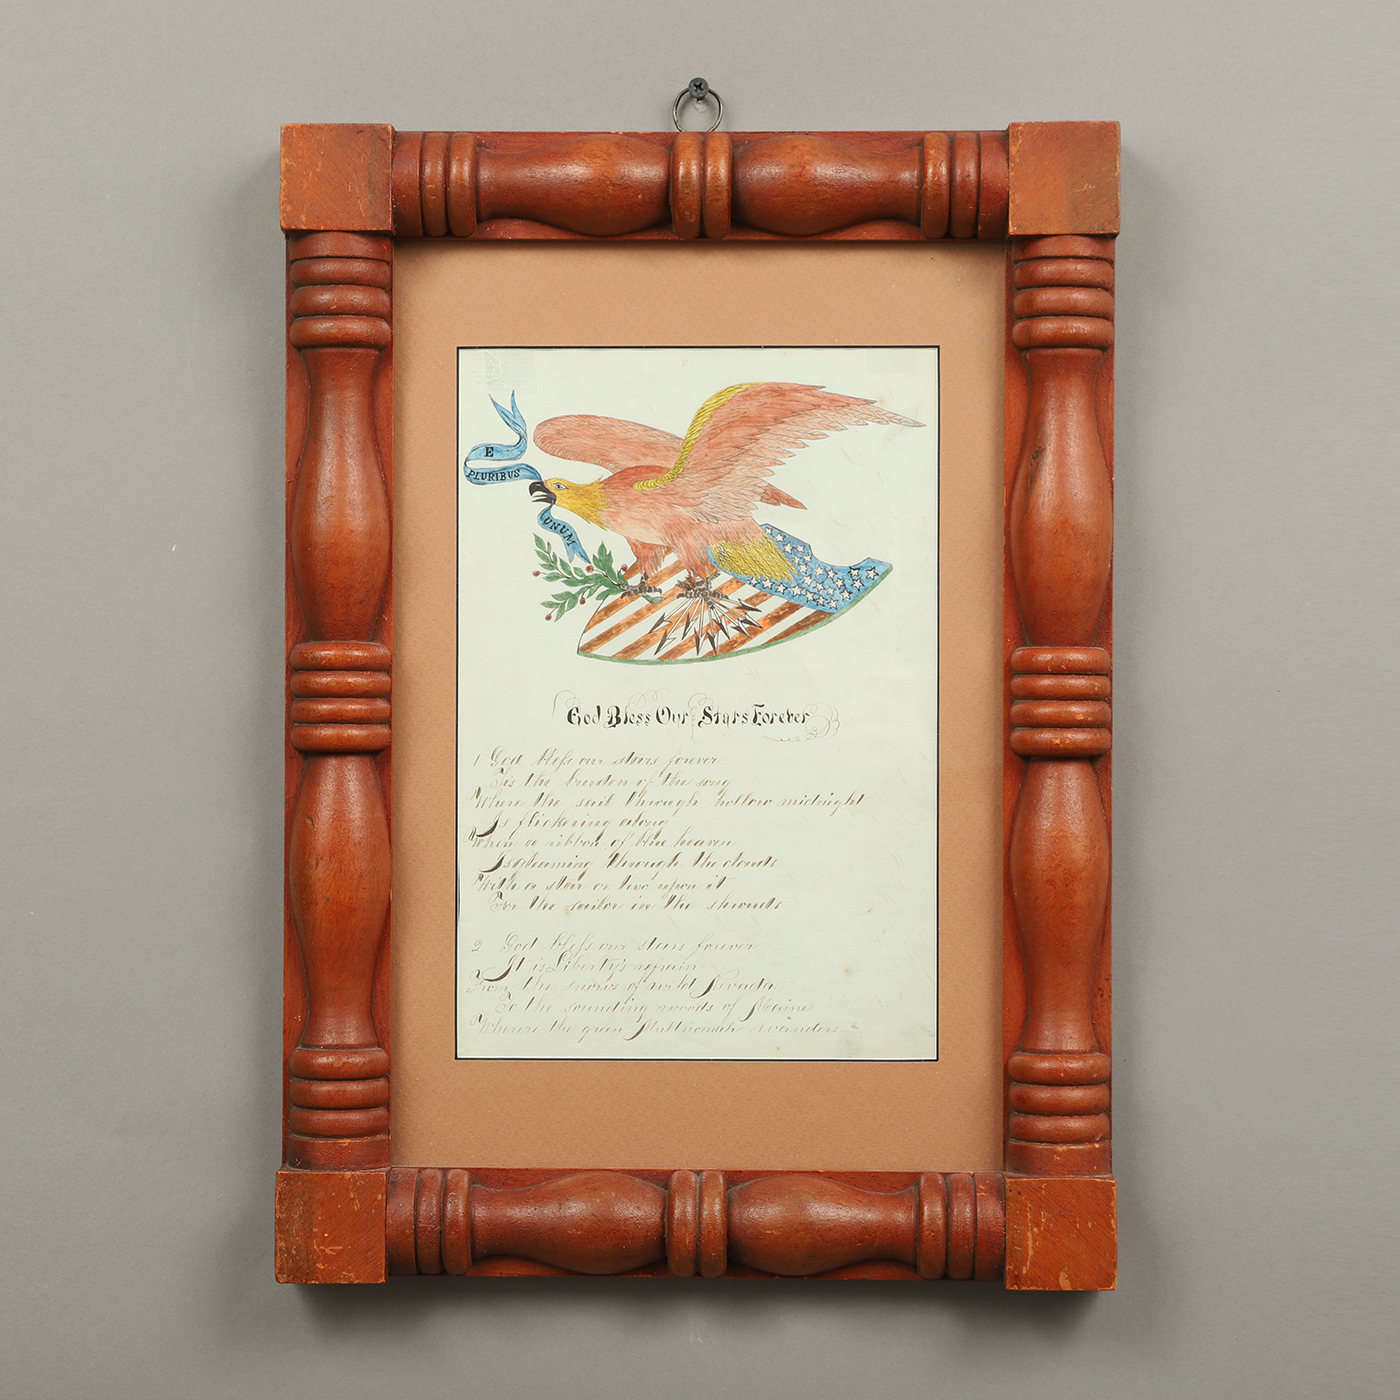 E
PLURIBUS
UNUM
God Bless Our Stars Forever
1 God bless our stars forever
Tis the burden of the song
Where the sail through hollow midnight
Is flickering along
When a ribbon of blue heaven
Is gleaming through the clouds
With a star or two upon it
For the sailor in the shrouds
2 God bless our stars forever
It is Liberty's refrain
From the snows of wild Nevada
To the sounding woods of Maine
Where the green Multnomah wanders